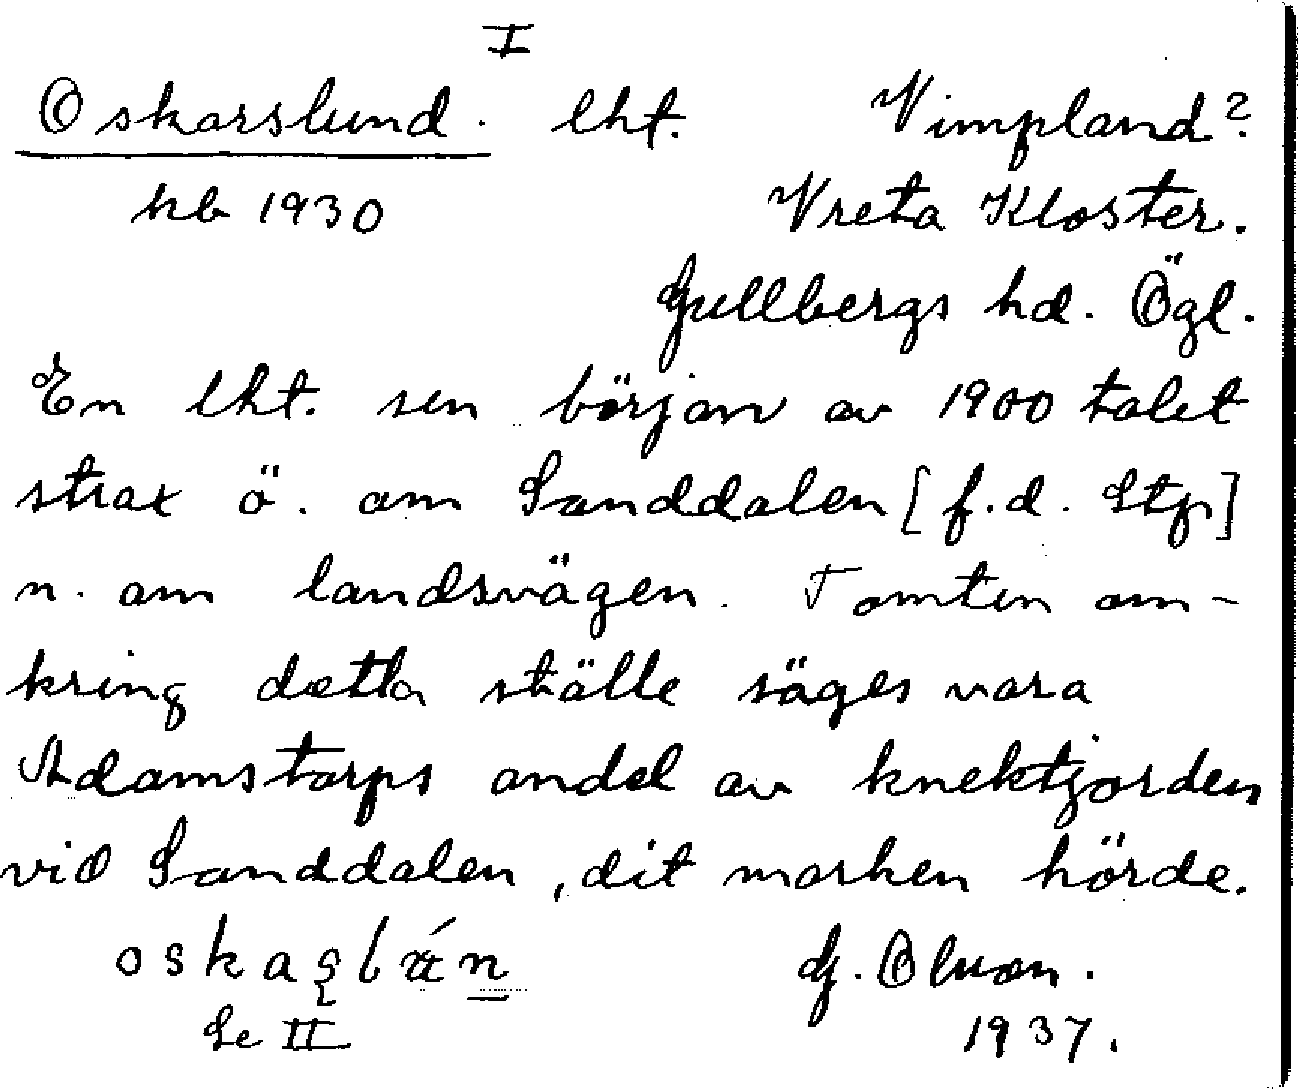 I
Oskarslund. lht. Vimpland?
hb 1930 Vreta Kloster.
Gullbergs hd. Ögl.
En lht. sen början av 1900 talet
strax ö. om Sanddalen [f.d. Stp]
n. om landsvägen. Tomten om-
kring detta ställe säges vara
Adamstorps andel av knektjorden
vid Sanddalen, dit marken hörde.
G. Olsson.
Se II 1937.